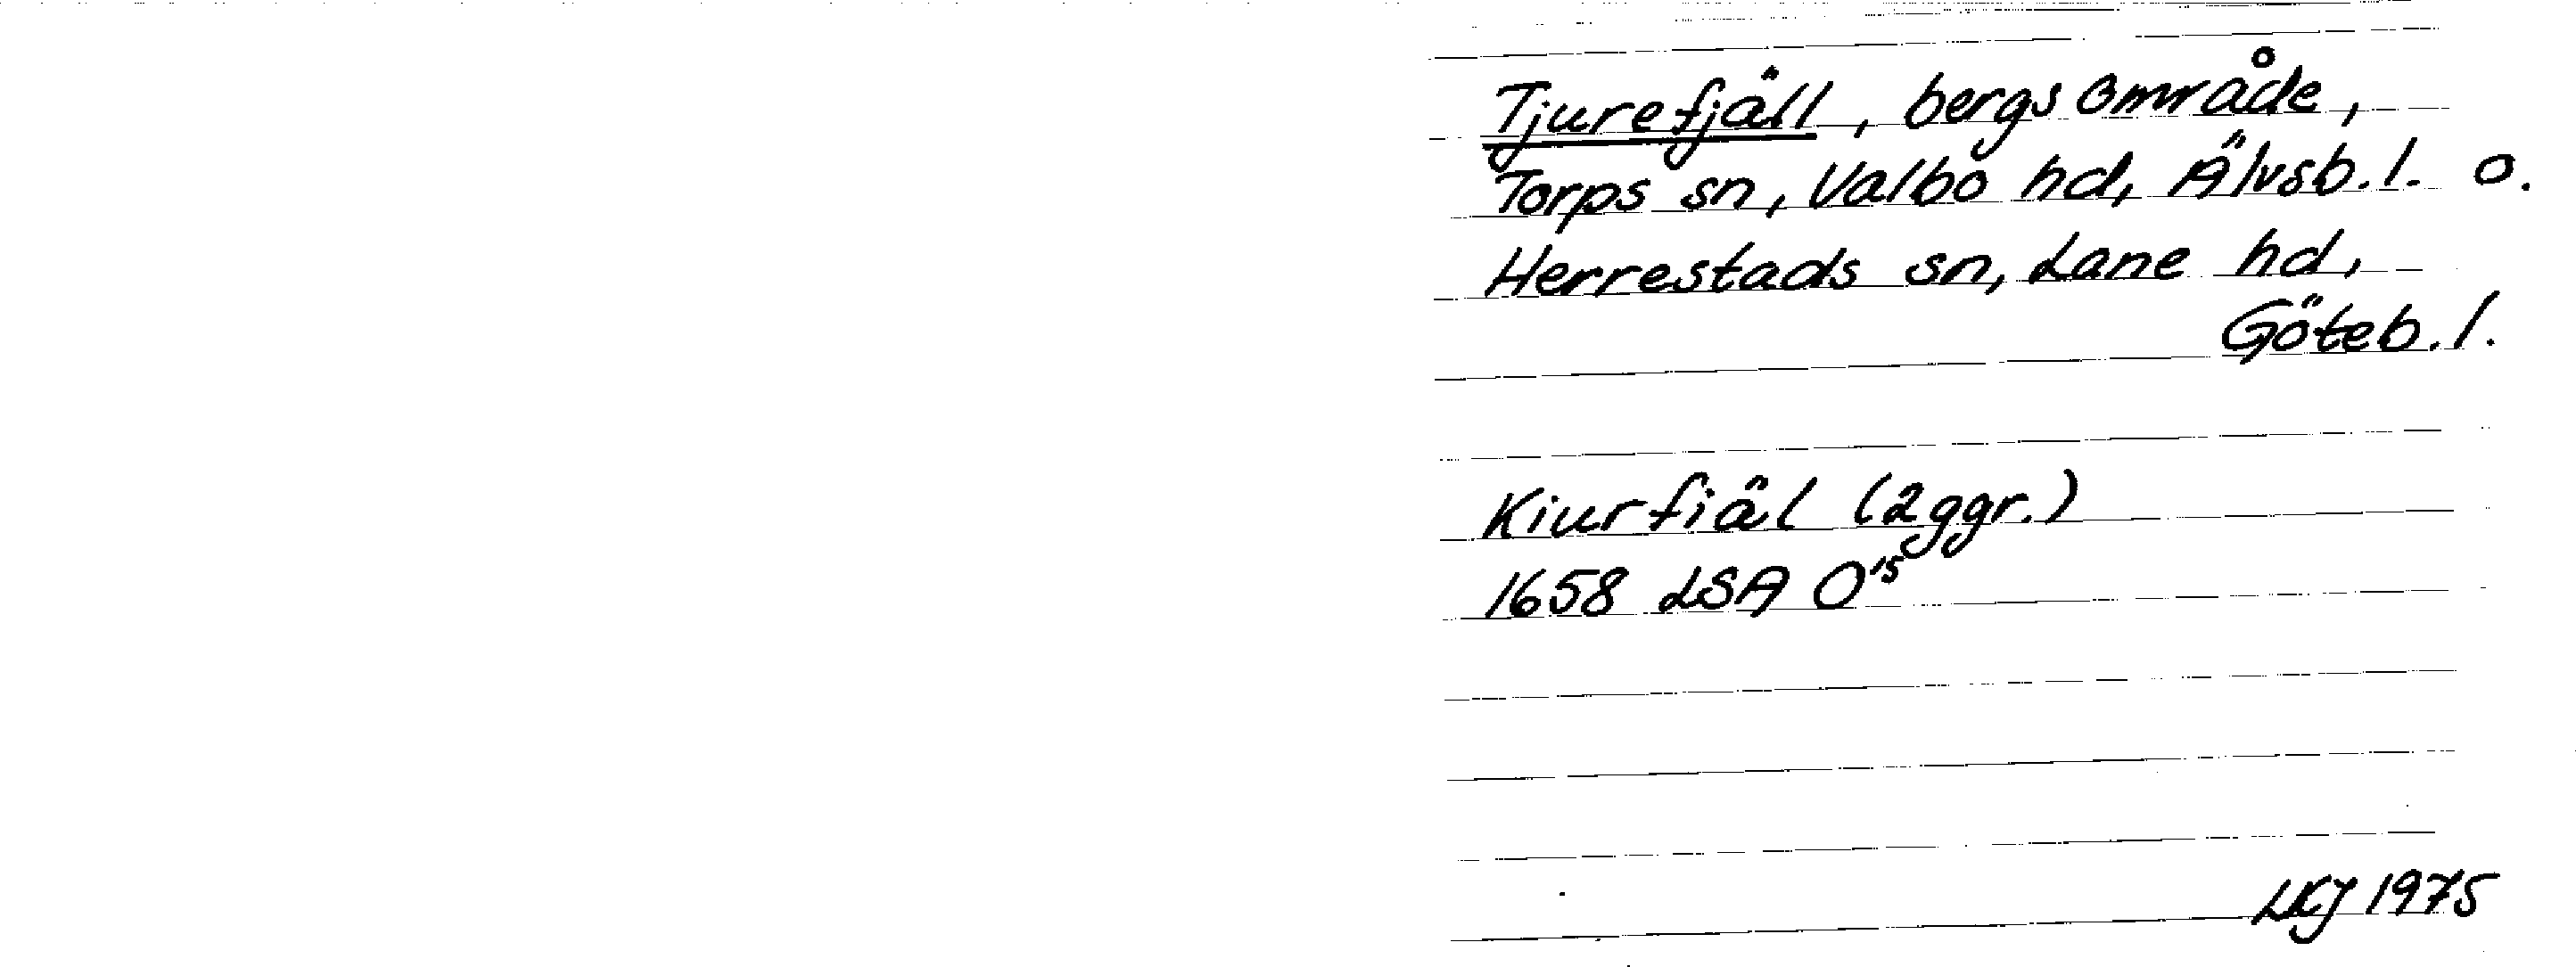 Tjurefjäll, bergsområde,
Torps sn, Valbo hd, Älvsb. l. o.
Herrestads sn, Lane hd,
Göteb. l.
Kiurfiäl (2ggr.)
1658 LSA O¹⁵
LKJ 1975